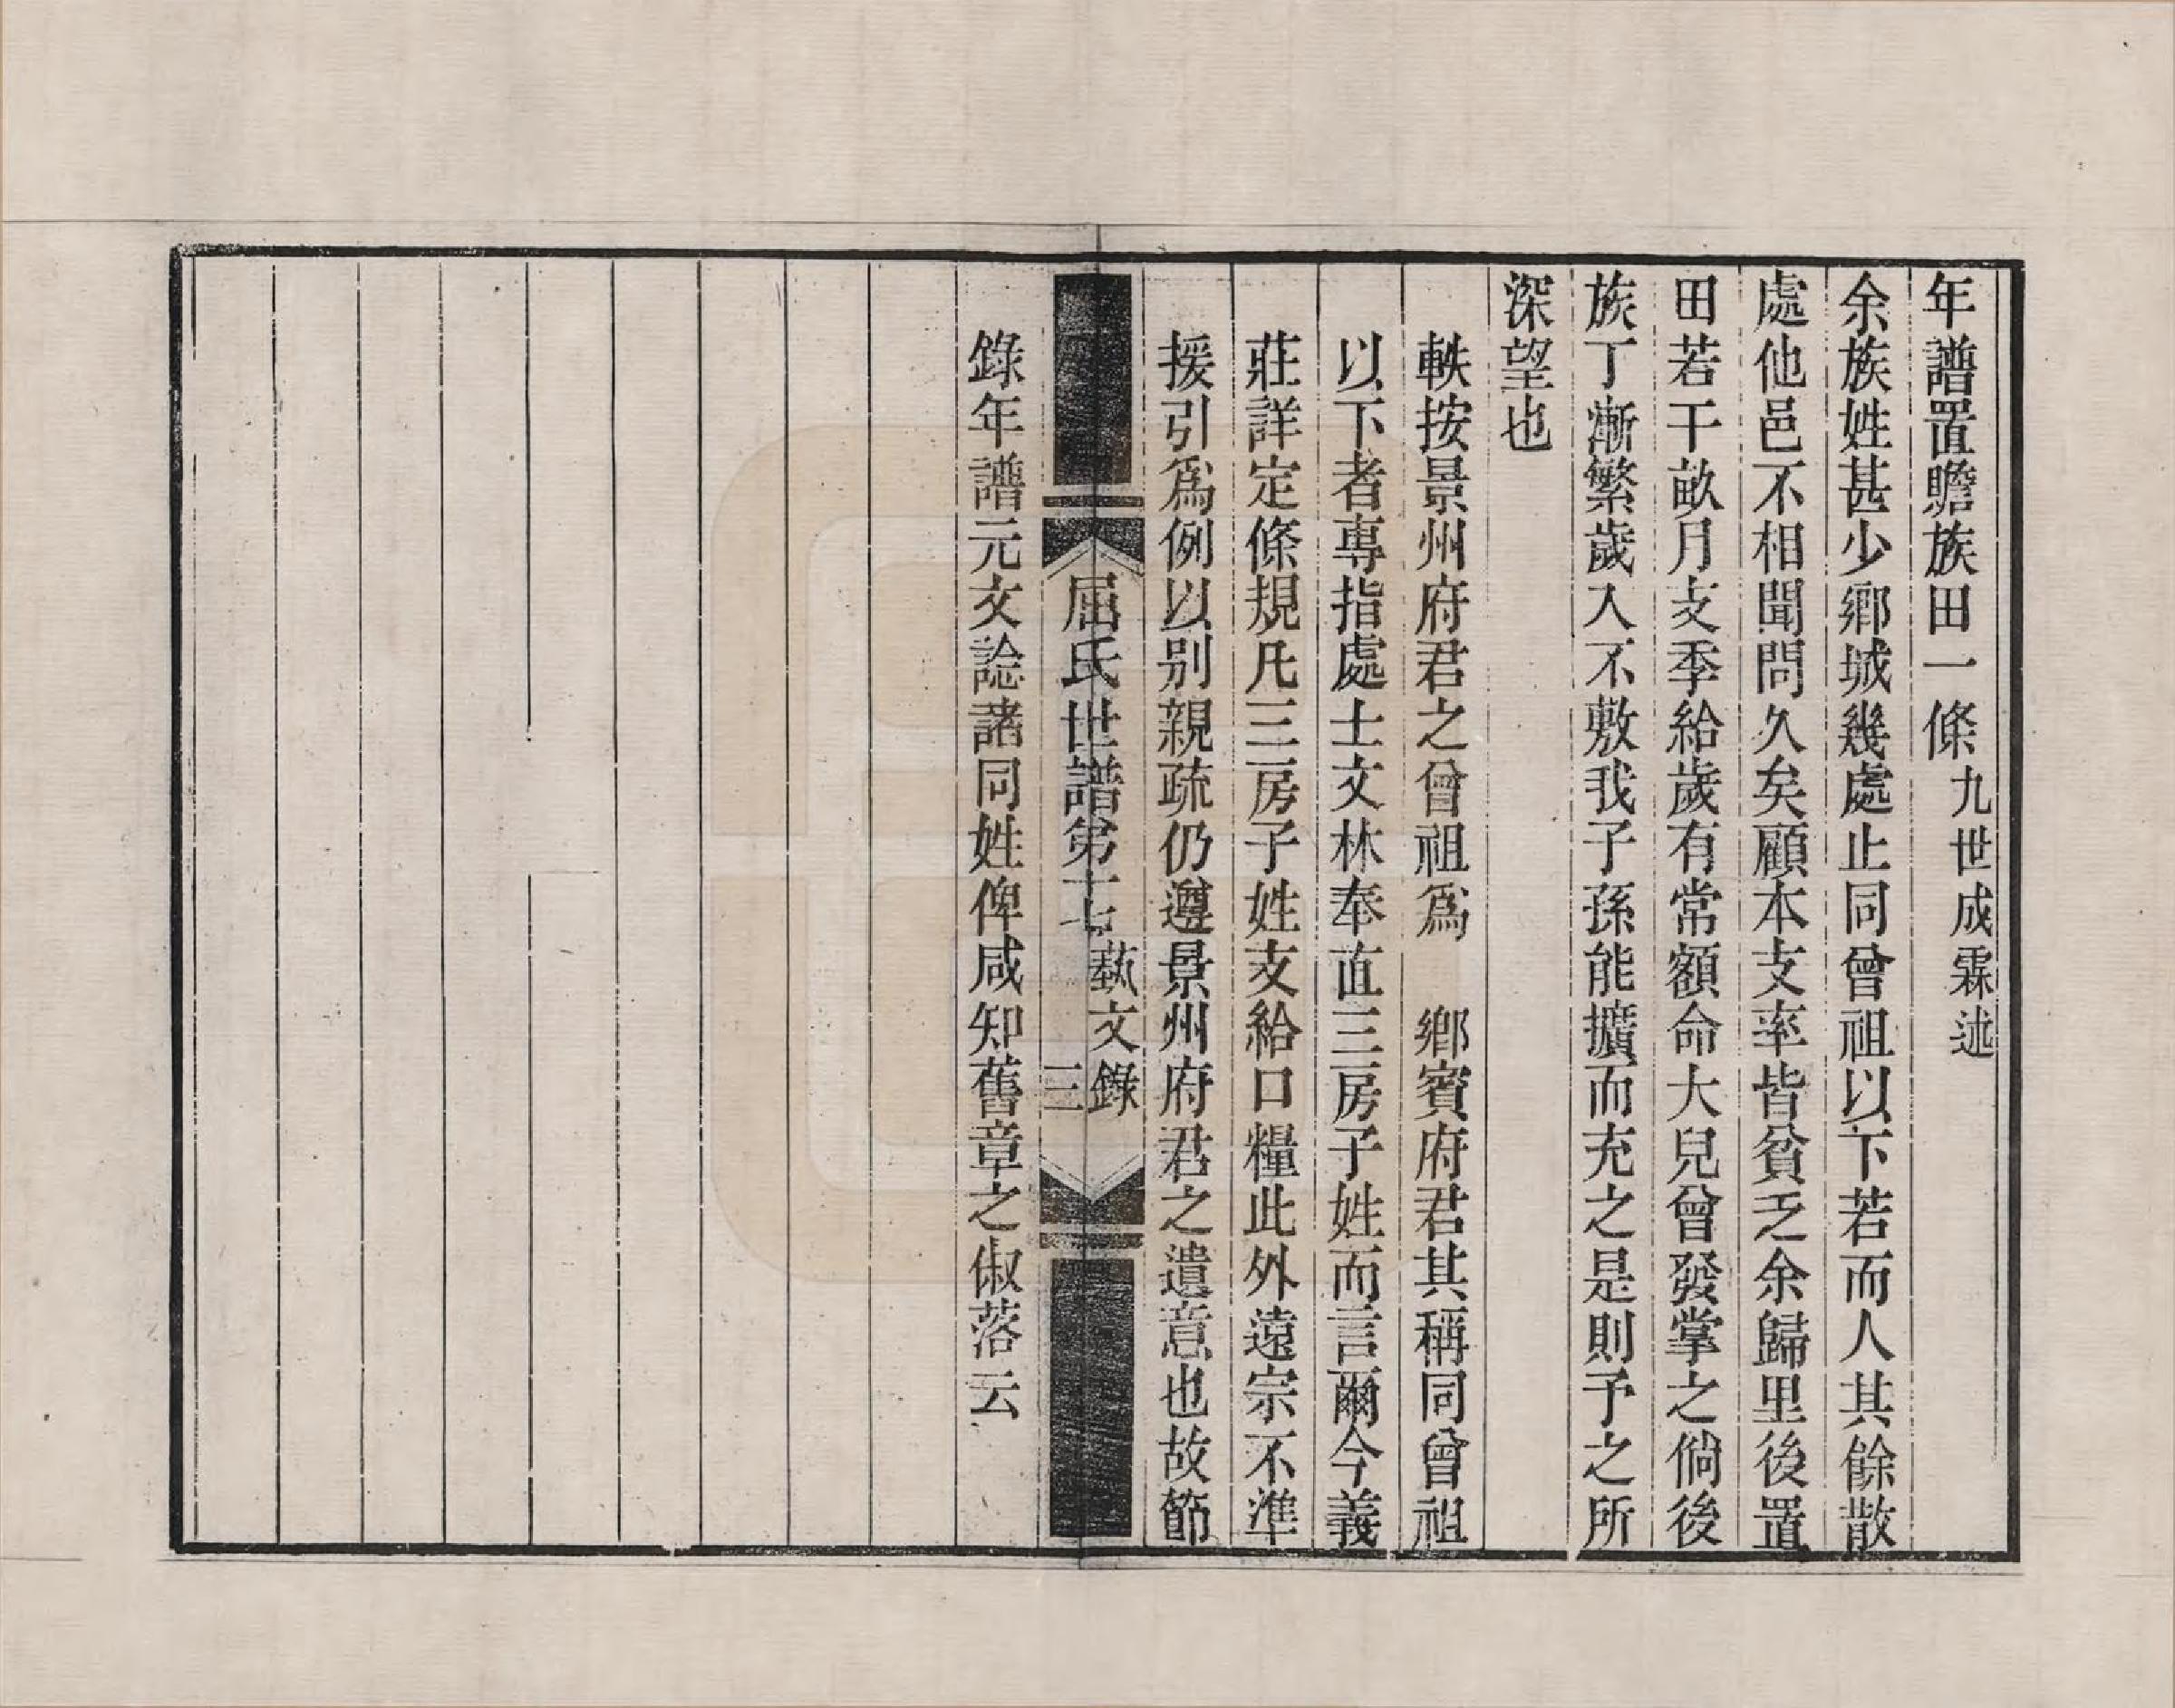 年譜置贍族田一條九世成霖述
余族姓甚少鄉城幾處止同曾祖以下若而人其餘散
處他邑不相聞問久矣顧本支率皆貧乏余歸里後置
田若干畝月支季給歲有常額命大兒曾發掌之倘後
族丁漸繁歲入不敷我子孫能擴而充之是則予之所
深望也
軼按景州府君之曾祖爲　鄉賓府君其稱同曾祖
以下者專指處士文林奉直三房子姓而言爾今義
莊詳定條規凡三房子姓支給口糧此外遠宗不準
援引爲例以别親疏仍遵景州府君之遺意也故節
屈氏世譜第十七　藝文錄　三
錄年譜元文諗諸同姓俾咸知舊章之俶落云